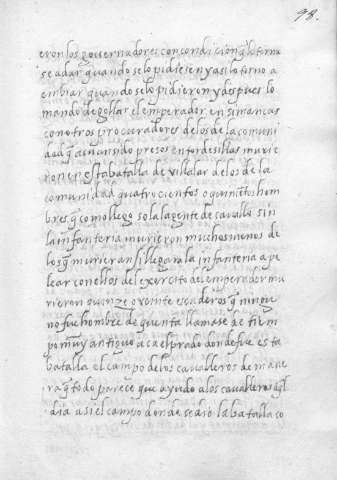 98.
eron los governadores con condicion q̃ lo torna
se a dar quando se lo pidiesen y asi lo torno a
embiar quando se lo pidieron y despues lo
mando degollar el emperador en simancas
con otros procuradores de los de la comuni
dad q̃ avian sido presos en tordesillas murie
ron en esta batalla de villalar de los de la
comunidad quatrocientos o quinientos hom
bres q̃ como llego sola la gente de cavallo sin
la infanteria murieron muchos menos de
los q̃ murieran si llegara la infanteria a pe
lear con ellos del exercito del emperador mu
rieron quinze o veinte escuderos q̃ ningu
no fue hombre de quenta llamase de tiem
po muy antiguo aca el prado donde fue esta
batalla el campo de los cavalleros de mane
ra q̃ todo parece que ayudo a los cavalleros aq̃l
dia asi el campo donde se dio la batalla co